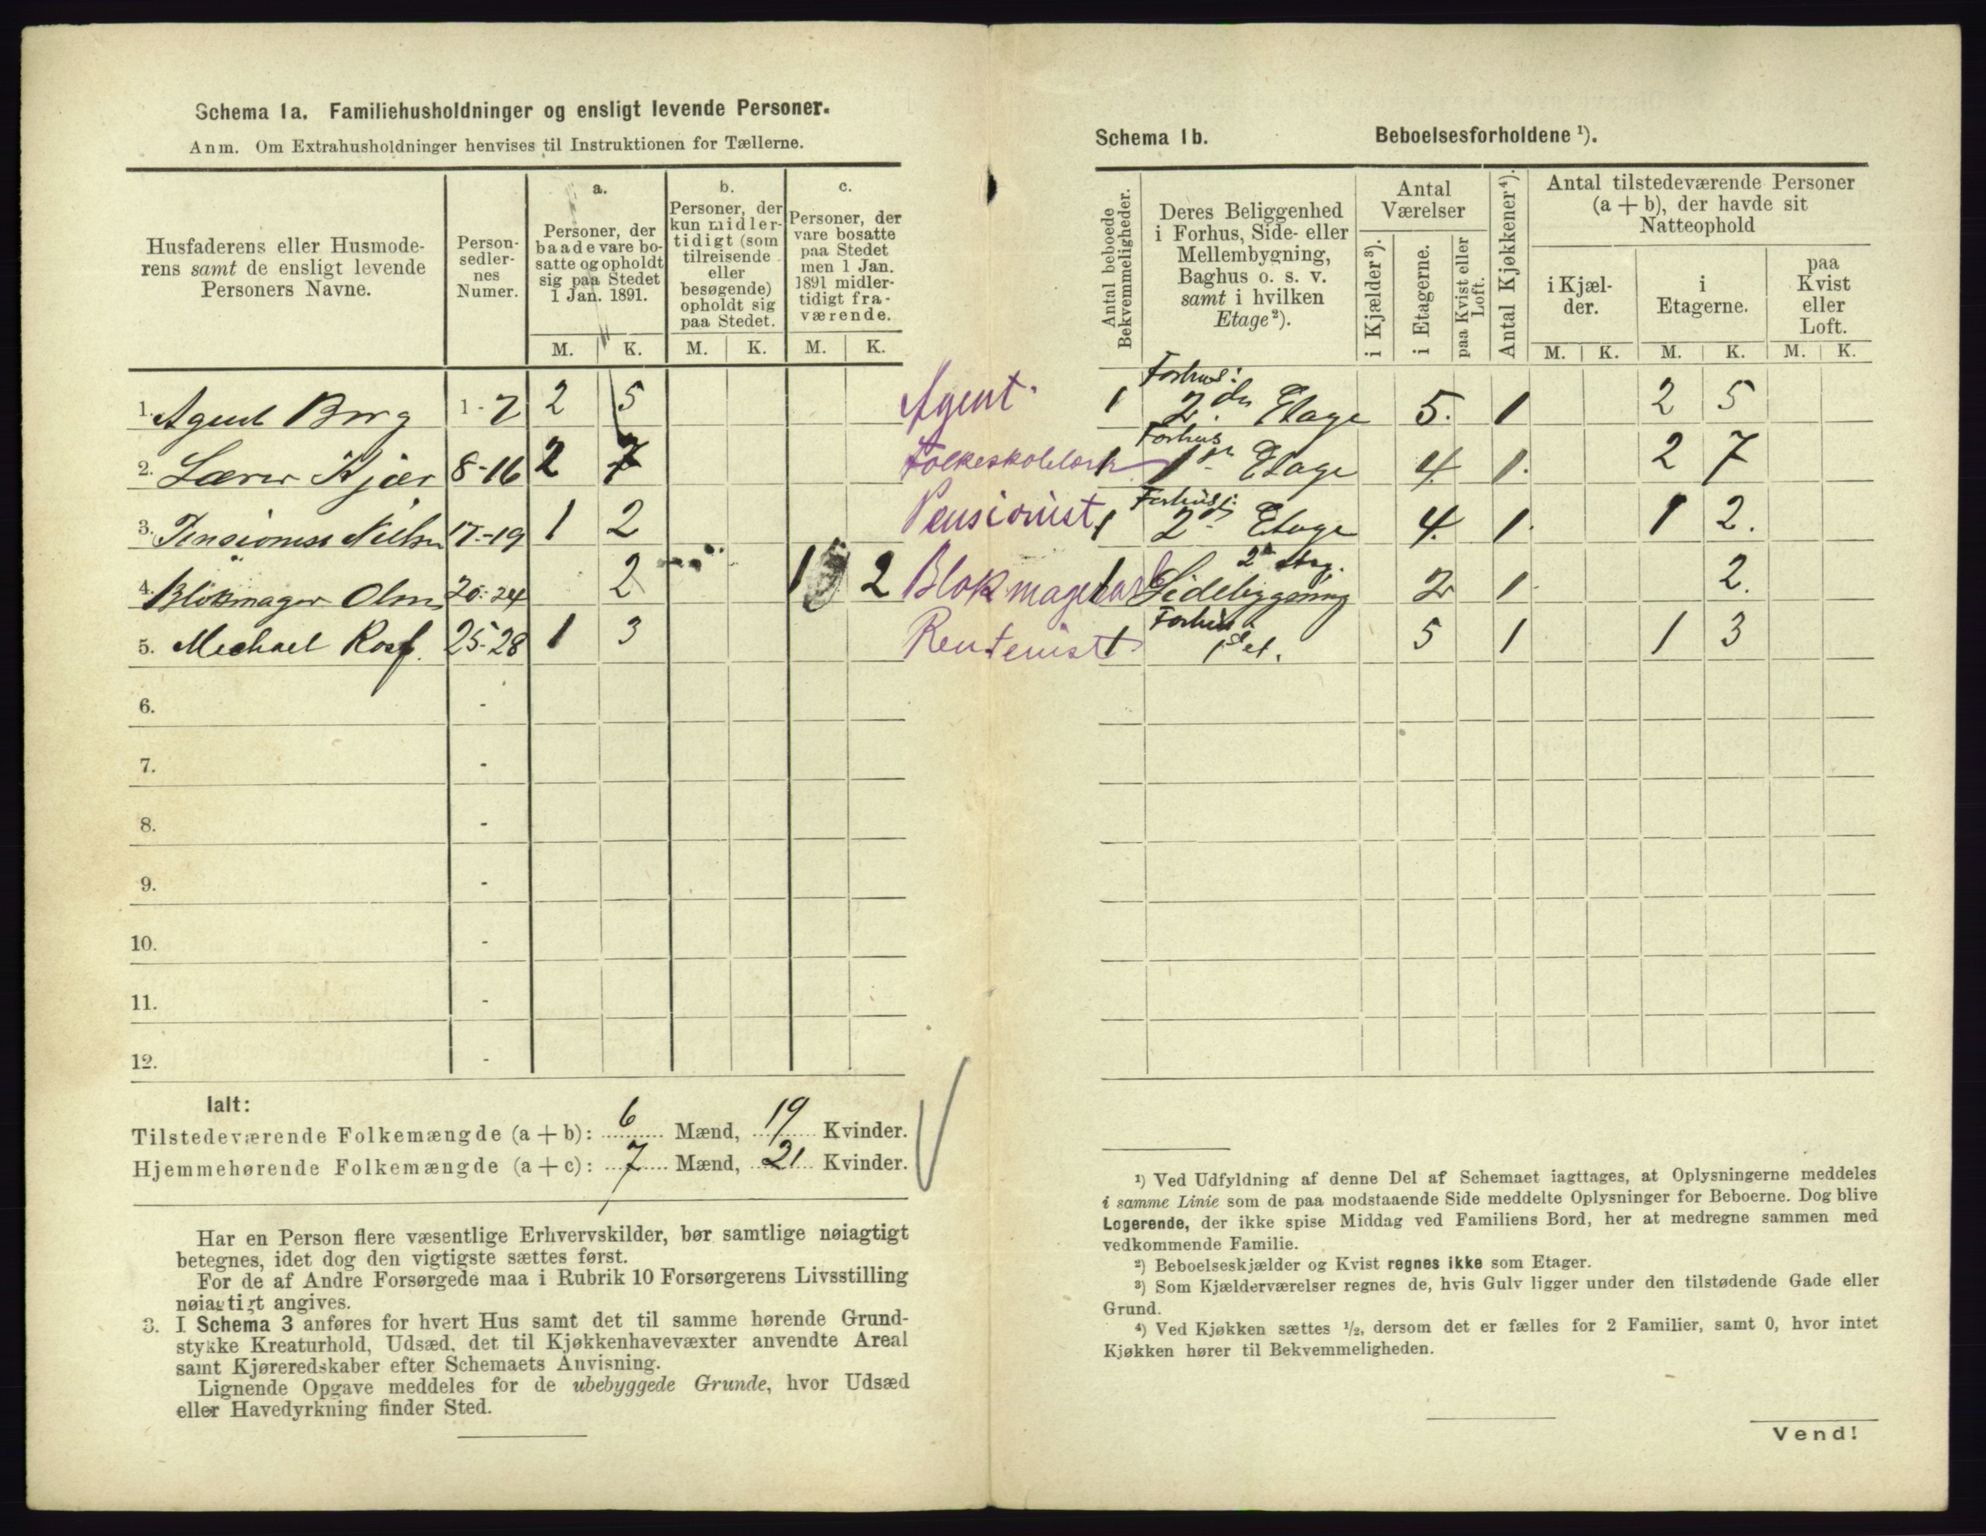 Schema 1a. Familiehusholdninger og ensligt levende Personer.
Anm. Om Extrahusholdninger henvises til Instruktionen for Tællerne.
Husfaderens eller Husmode-
rens samt de ensligt levende
Personers Navne.
Person-
sedler-
nes
Numer.
a.
Personer, der
baade vare bo-
satte og opholdt
sig paa Stedet
1 Jan. 1891.
b.
Personer, der
kun midler-
tidigt (som
tilreisende
eller
besøgende)
opholdt sig
paa Stedet.
c.
Personer, der
vare bosatte
paa Stedet
men 1 Jan.
1891 midler-
tidigt fra-
værende.
M. K. M. K. M. K.
1. Agent Borg 1-7 2 5 Agent.
2. Lærer Kjær 8-16 2 7
3. Pensionist Nielsen 17-19 1 2 Pensionist
4. Blokmager Olsen 20-24 2 1 2
5. Michael Rosf. 25-28 1 3 Rentenist
6. -
7. -
8. -
9. -
10. -
11. -
12. -
Ialt:
Tilstedeværende Folkemængde (a + b): 6 Mænd, 19 Kvinder.
Hjemmehørende Folkemængde (a + c): 7 Mænd, 21 Kvinder.
Har en Person flere væsentlige Erhvervskilder, bør samtlige nøiagtigt
betegnes, idet dog den vigtigste sættes først.
For de af Andre Forsørgede maa i Rubrik 10 Forsørgerens Livsstilling
nøiagtigt angives.
3. I Schema 3 anføres for hvert Hus samt det til samme hørende Grund-
stykke Kreaturhold, Udsæd, det til Kjøkkenhavevæxter anvendte Areal
samt Kjøreredskaber efter Schemaets Anvisning.
Lignende Opgave meddeles for de ubebyggede Grunde, hvor Udsæd
eller Havedyrkning finder Sted.
Schema 1b. Beboelsesforholdene ¹).
Antal beboede
Bekvemmeligheder.
Deres Beliggenhed
i Forhus, Side- eller
Mellembygning,
Baghus o. s. v.
samt i hvilken
Etage²).
Antal
Værelser
i Kjælder³).
i Etagerne.
paa Kvist eller
Loft.
Antal Kjøkkener⁴).
Antal tilstedeværende Personer
(a + b), der havde sit
Natteophold
i Kjæl-
der.
i
Etagerne.
paa
Kvist
eller
Loft.
M. K. M. K. M. K.
Forhus:
1 2den Etage 5. 1 2 5
Forhus
1 1ste Etage 4. 1. 2 7
Forhus:
1 2den Etage 4. 1. 1 2.
2n Etag.
1 Sidebygning 2 1. 2.
Forhus
1 1st et. 5 1 1 3
¹) Ved Udfyldning af denne Del af Schemaet iagttages, at Oplysningerne meddeles
i samme Linie som de paa modstaaende Side meddelte Oplysninger for Beboerne. Dog blive
Logerende, der ikke spise Middag ved Familiens Bord, her at medregne sammen med
vedkommende Familie.
²) Beboelseskjælder og Kvist regnes ikke som Etager.
³) Som Kjælderværelser regnes de, hvis Gulv ligger under den tilstødende Gade eller
Grund.
⁴) Ved Kjøkken sættes ½, dersom det er fælles for 2 Familier, samt 0, hvor intet
Kjøkken hører til Bekvemmeligheden.
Vend!